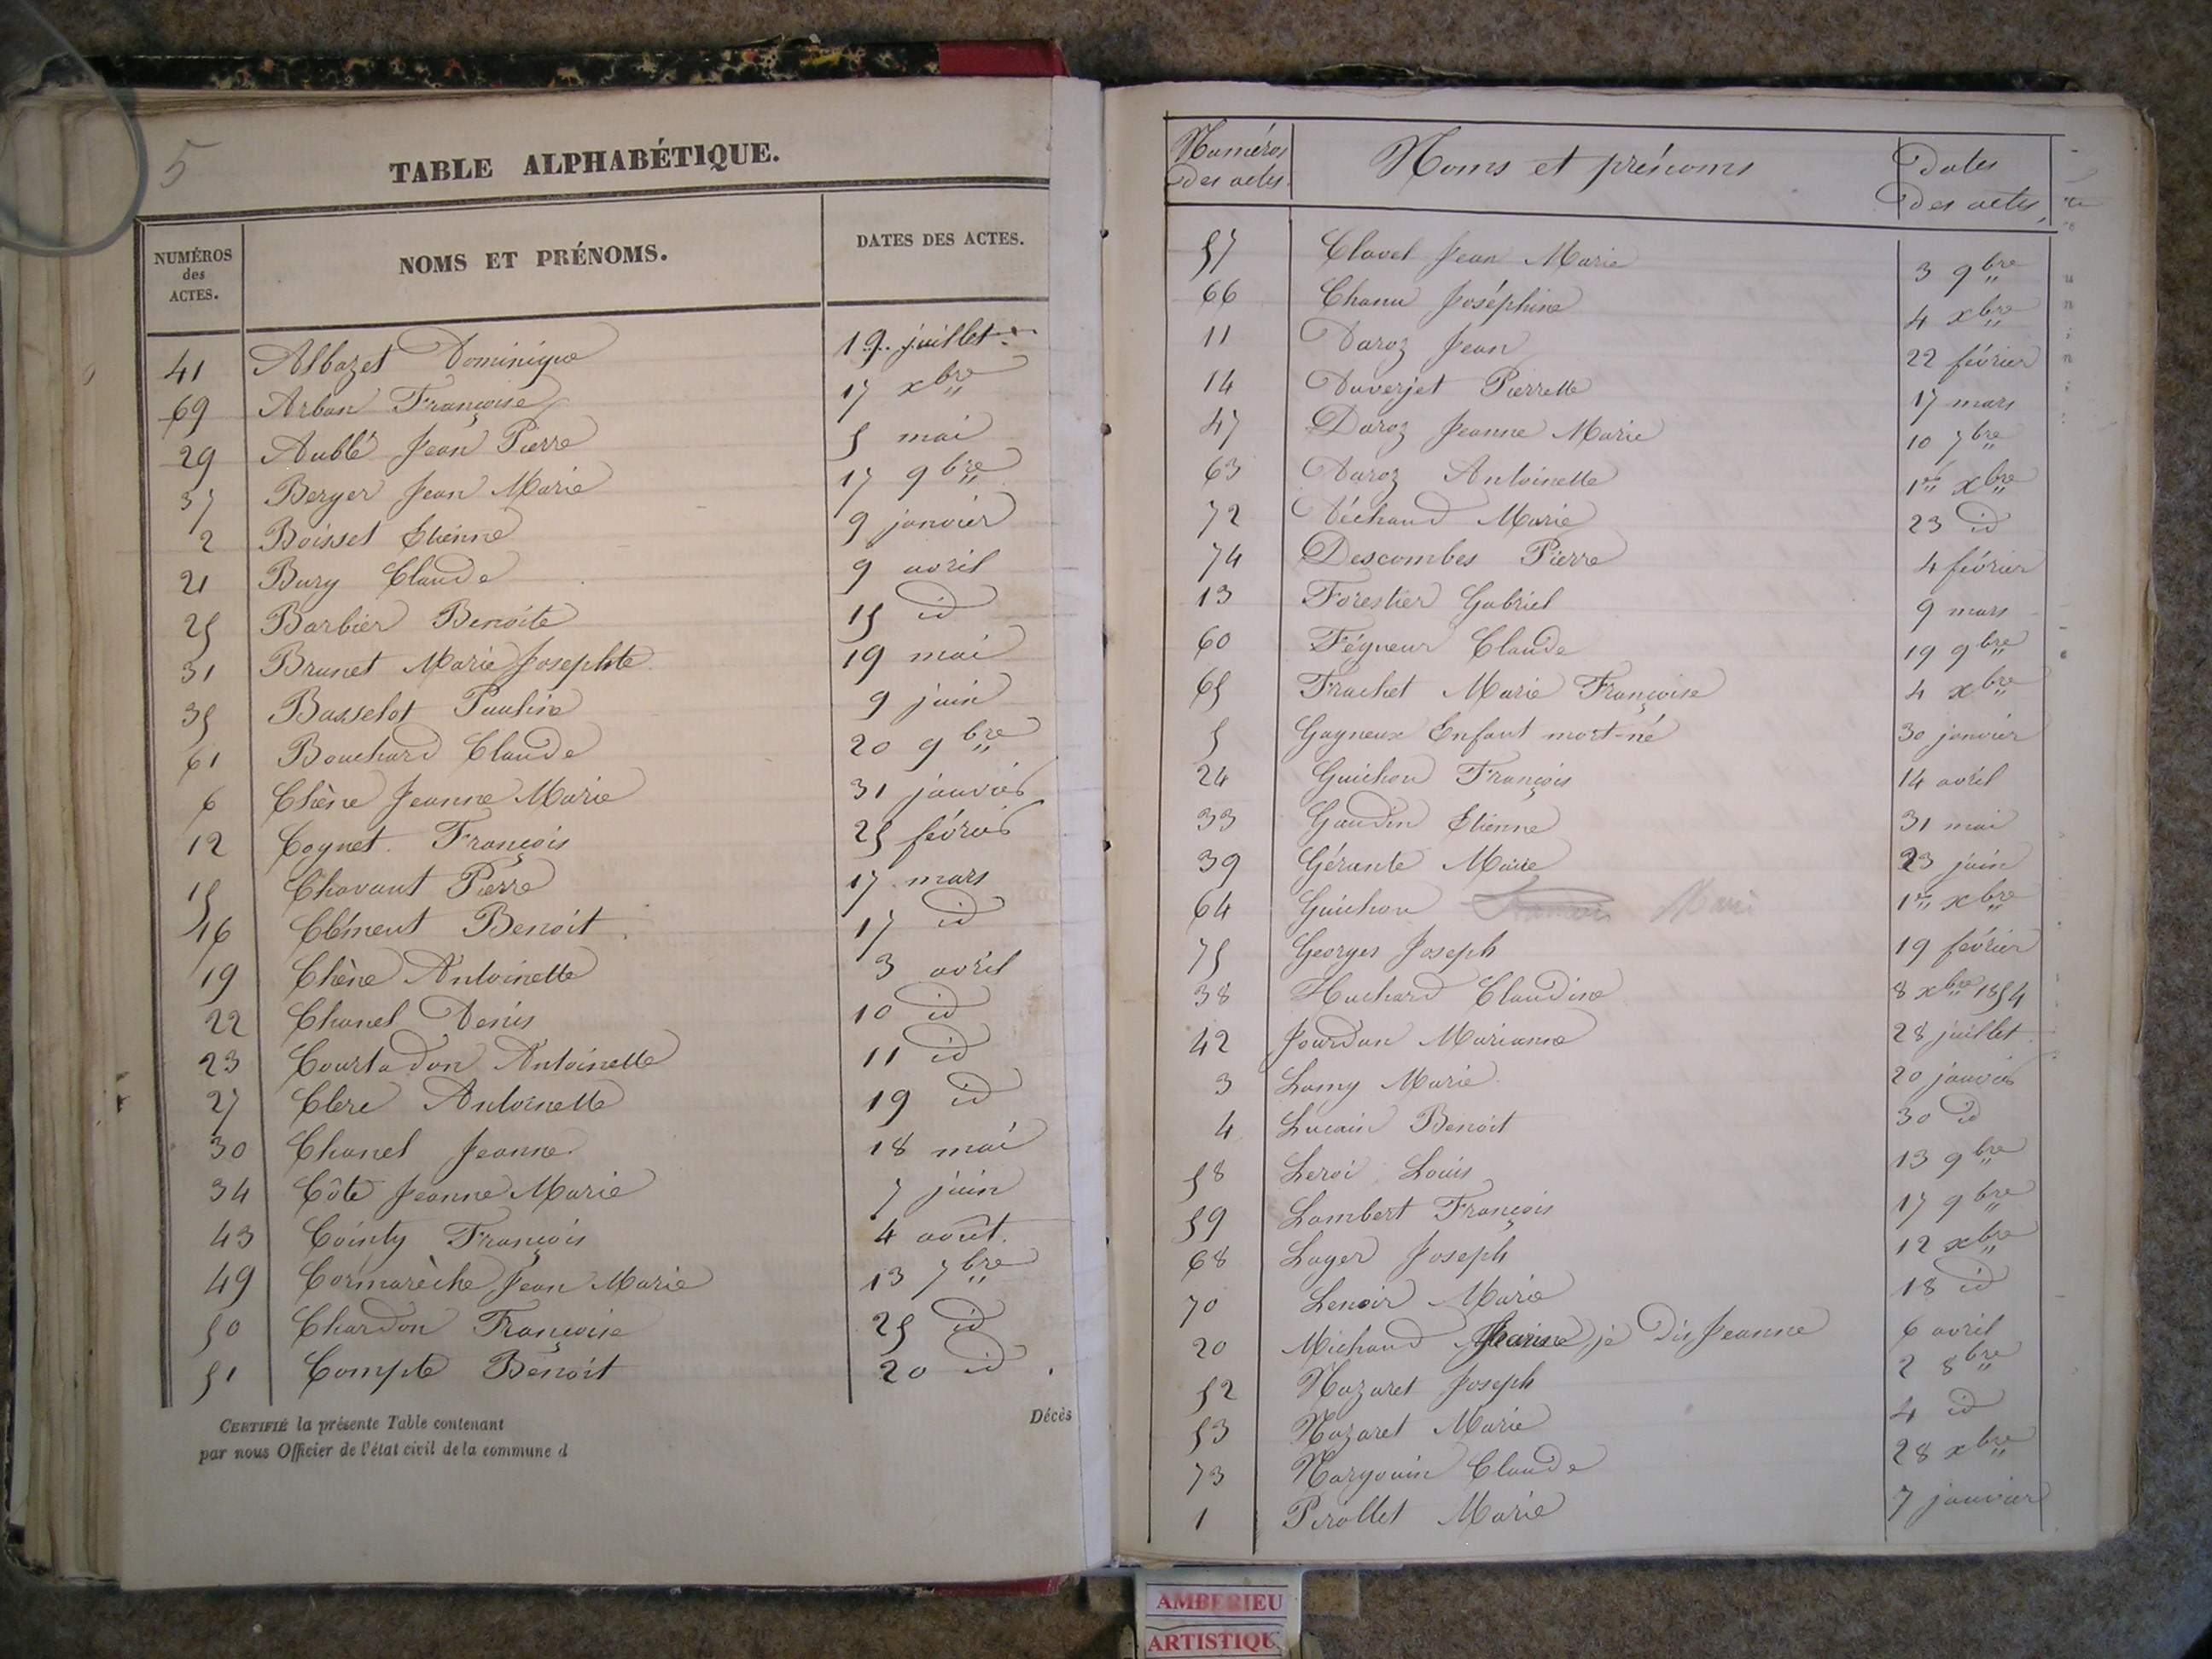 5
TABLE ALPHABÉTIQUE.
NUMÉROS des ACTES. NOMS ET PRÉNOMS. DATES DES ACTES.
41 Albazet Dominique 19 juillet
69 Arban Françoise 17 xbre
29 Aublé Jean Pierre 5 mai
37 Berger Jean Marie 17 9bre
2 Boisset Etienne 9 janvier
21 Bury Claude 9 avril
25 Barbier Benoîte 15 id
31 Brunet Marie Josephte 19 mai
35 Basselot Pauline 9 juin
61 Bouchard Claude 20 9bre
6 Chêne Jeanne Marie 31 janvier
12 Cognet François 25 février
15 Chavant Pierre 17 mars
16 Clément Benoit 17 id
19 Chêne Antoinette 3 avril
22 Chanel Denis 10 id
23 Courtadon Antoinette 11 id
27 Clerc Antoinette 19 id
30 Chanel Jeanne 18 mai
34 Côte Jeanne Marie 7 juin
43 Cointy François 4 août
49 Cormarèche Jean Marie 13 7bre
50 Chardon Françoise 25 id
51 Compte Benoit 20 id
CERTIFIÉ la présente Table contenant Décès
par nous Officier de l'état civil de la commune d
Numéros des actes. Noms et prénoms Dates des actes
57 Clavel Jean Marie 3 9bre
66 Chanu Joséphine 4 xbre
11 Daroz Jean 22 février
14 Duverjet Pierrette 17 mars
47 Daroz Jeanne Marie 10 7bre
63 Daroz Antoinette 1er xbre
72 Déchaud Marie 23 id
74 Descombes Pierre 4 février
13 Forestier Gabriel 9 mars
60 Fégueur Claude 19 9bre
65 Frachet Marie Françoise 4 xbre
5 Gagneux Enfant mort-né 30 janvier
24 Guichon François 14 avril
33 Gaudin Etienne 31 mai
39 Gérante Marie 23 juin
64 Guichon François Marie 1er xbre
75 Georges Joseph 19 février
38 Huchard Claudine 8 xbre 1854
42 Jourdan Marianne 28 juillet
3 Lamy Marie 20 janvier
4 Lucain Benoit 30 id
58 Leroi Louis 13 9bre
59 Lambert François 17 9bre
68 Lager Joseph 12 xbre
70 Lenoir Marie 18 id
20 Michaud je dis Jeanne 6 avril
52 Nazaret Joseph 2 8bre
53 Nazaret Marie 4 id
73 Nargouin Claude 28 xbre
1 Pirollet Marie 7 janvier
AMBERIEU
ARTISTIQU